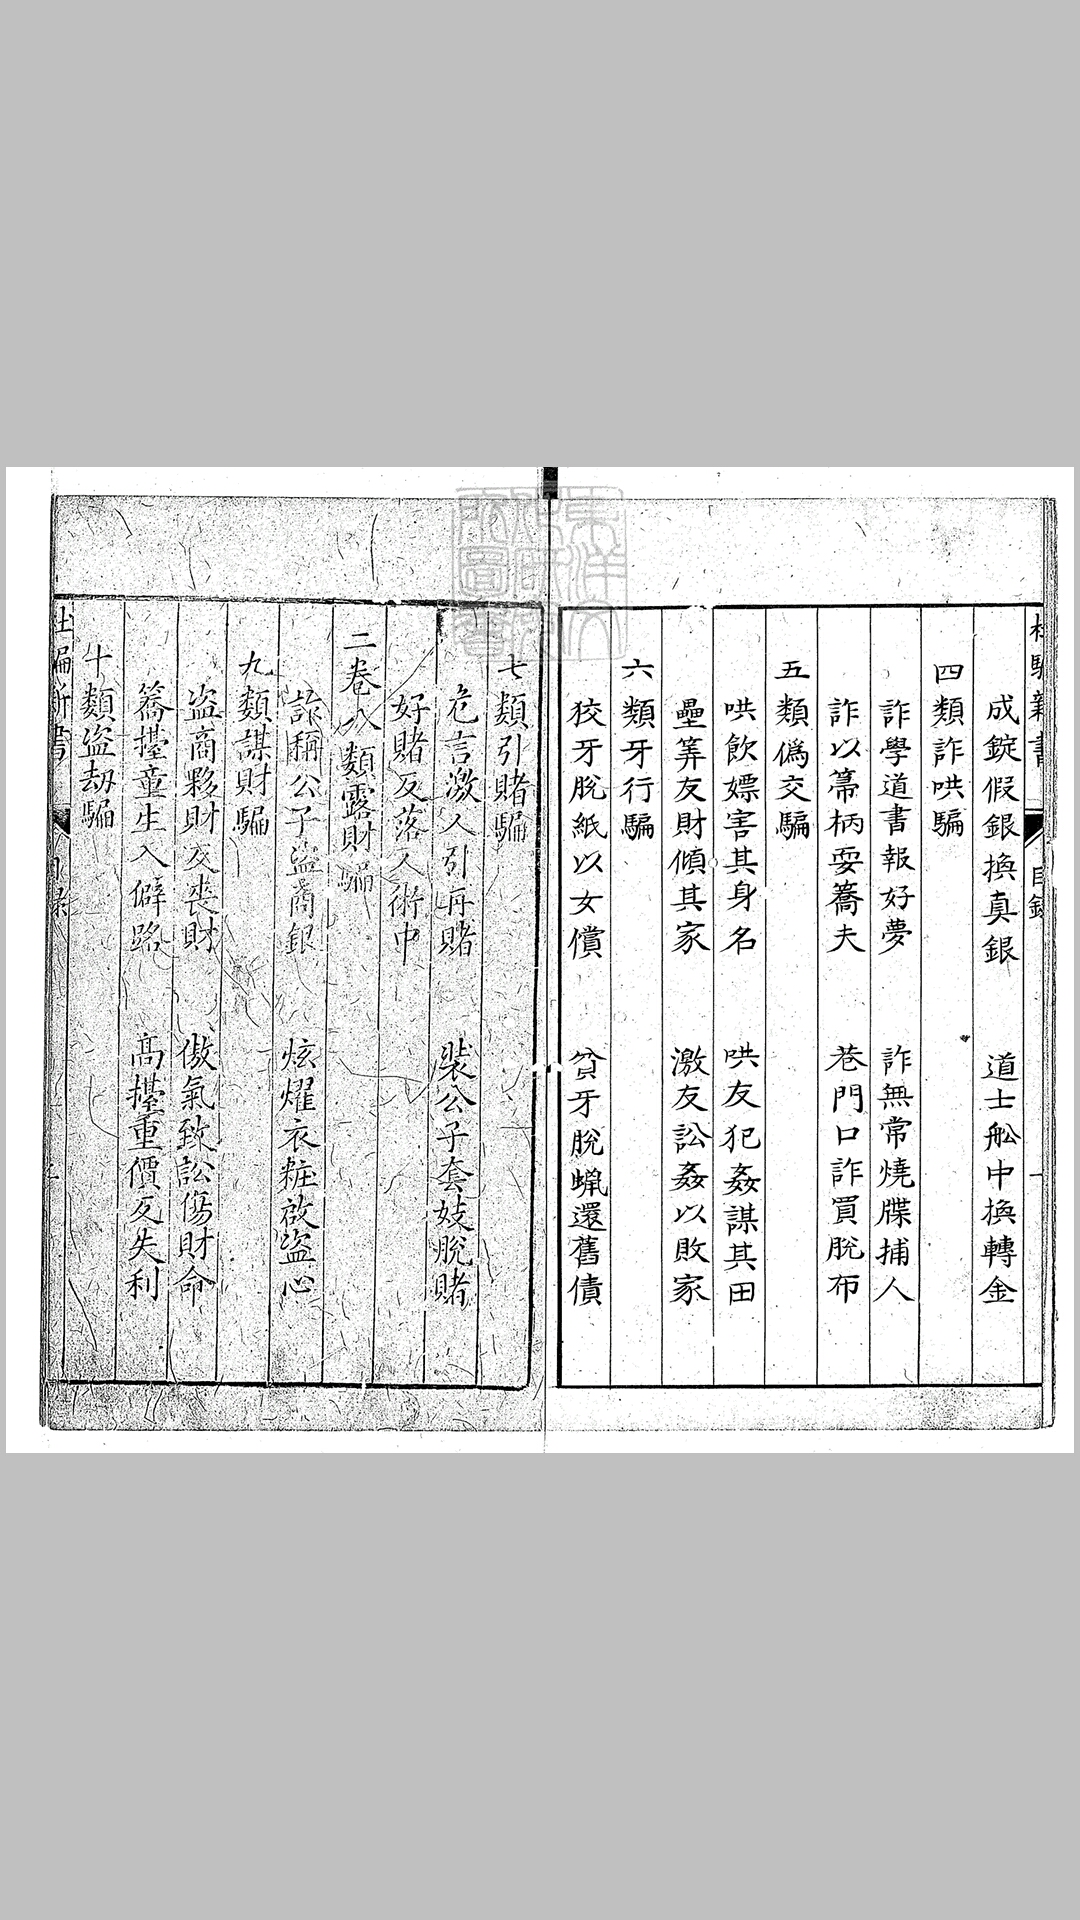 杜騙新書 目錄 一
成錠假銀換真銀 道士船中換轉金
四類詐哄騙
詐學道書報好夢 詐無常燒牒捕人
詐以帚柄耍轎夫 巷門口詐買脫布
五類偽交騙
哄飲嫖害其身名 哄友犯姦謀其田
壘筭友財傾其家 激友訟姦以敗家
六類牙行騙
狡牙脫紙以女償 貧牙脫蠟還舊債
七類引賭騙
危言激人引再賭 裝公子套妓脫賭
好賭反落人術中
二卷八類露財騙
詐稱公子盜商銀 炫耀衣粧啟盜心
九類謀財騙
盜商夥財反喪財 傲氣致訟傷財命
轎擡童生入僻路 高擡重價反失利
十類盜劫騙
杜騙新書 目錄